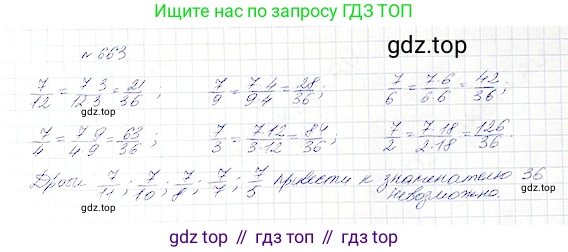 Ищите нас по запросу ГДЗ ТОП
№663
gdz.top
7/12 = 7·3/12·3 = 21/36; 7/9 = 7·4/9·4 = 28/36; 7/6 = 7·6/6·6 = 42/36;
gdz.top
7/4 = 7·9/4·9 = 63/36; 7/3 = 7·12/3·12 = 84/36; 7/2 = 7·18/2·18 = 126/36.
gdz.top
Дроби 7/11; 7/10; 7/8; 7/7; 7/5 привести к знаменателю 36
невозможно.
gdz.top
gdz.top // gdz.top // gdz.top